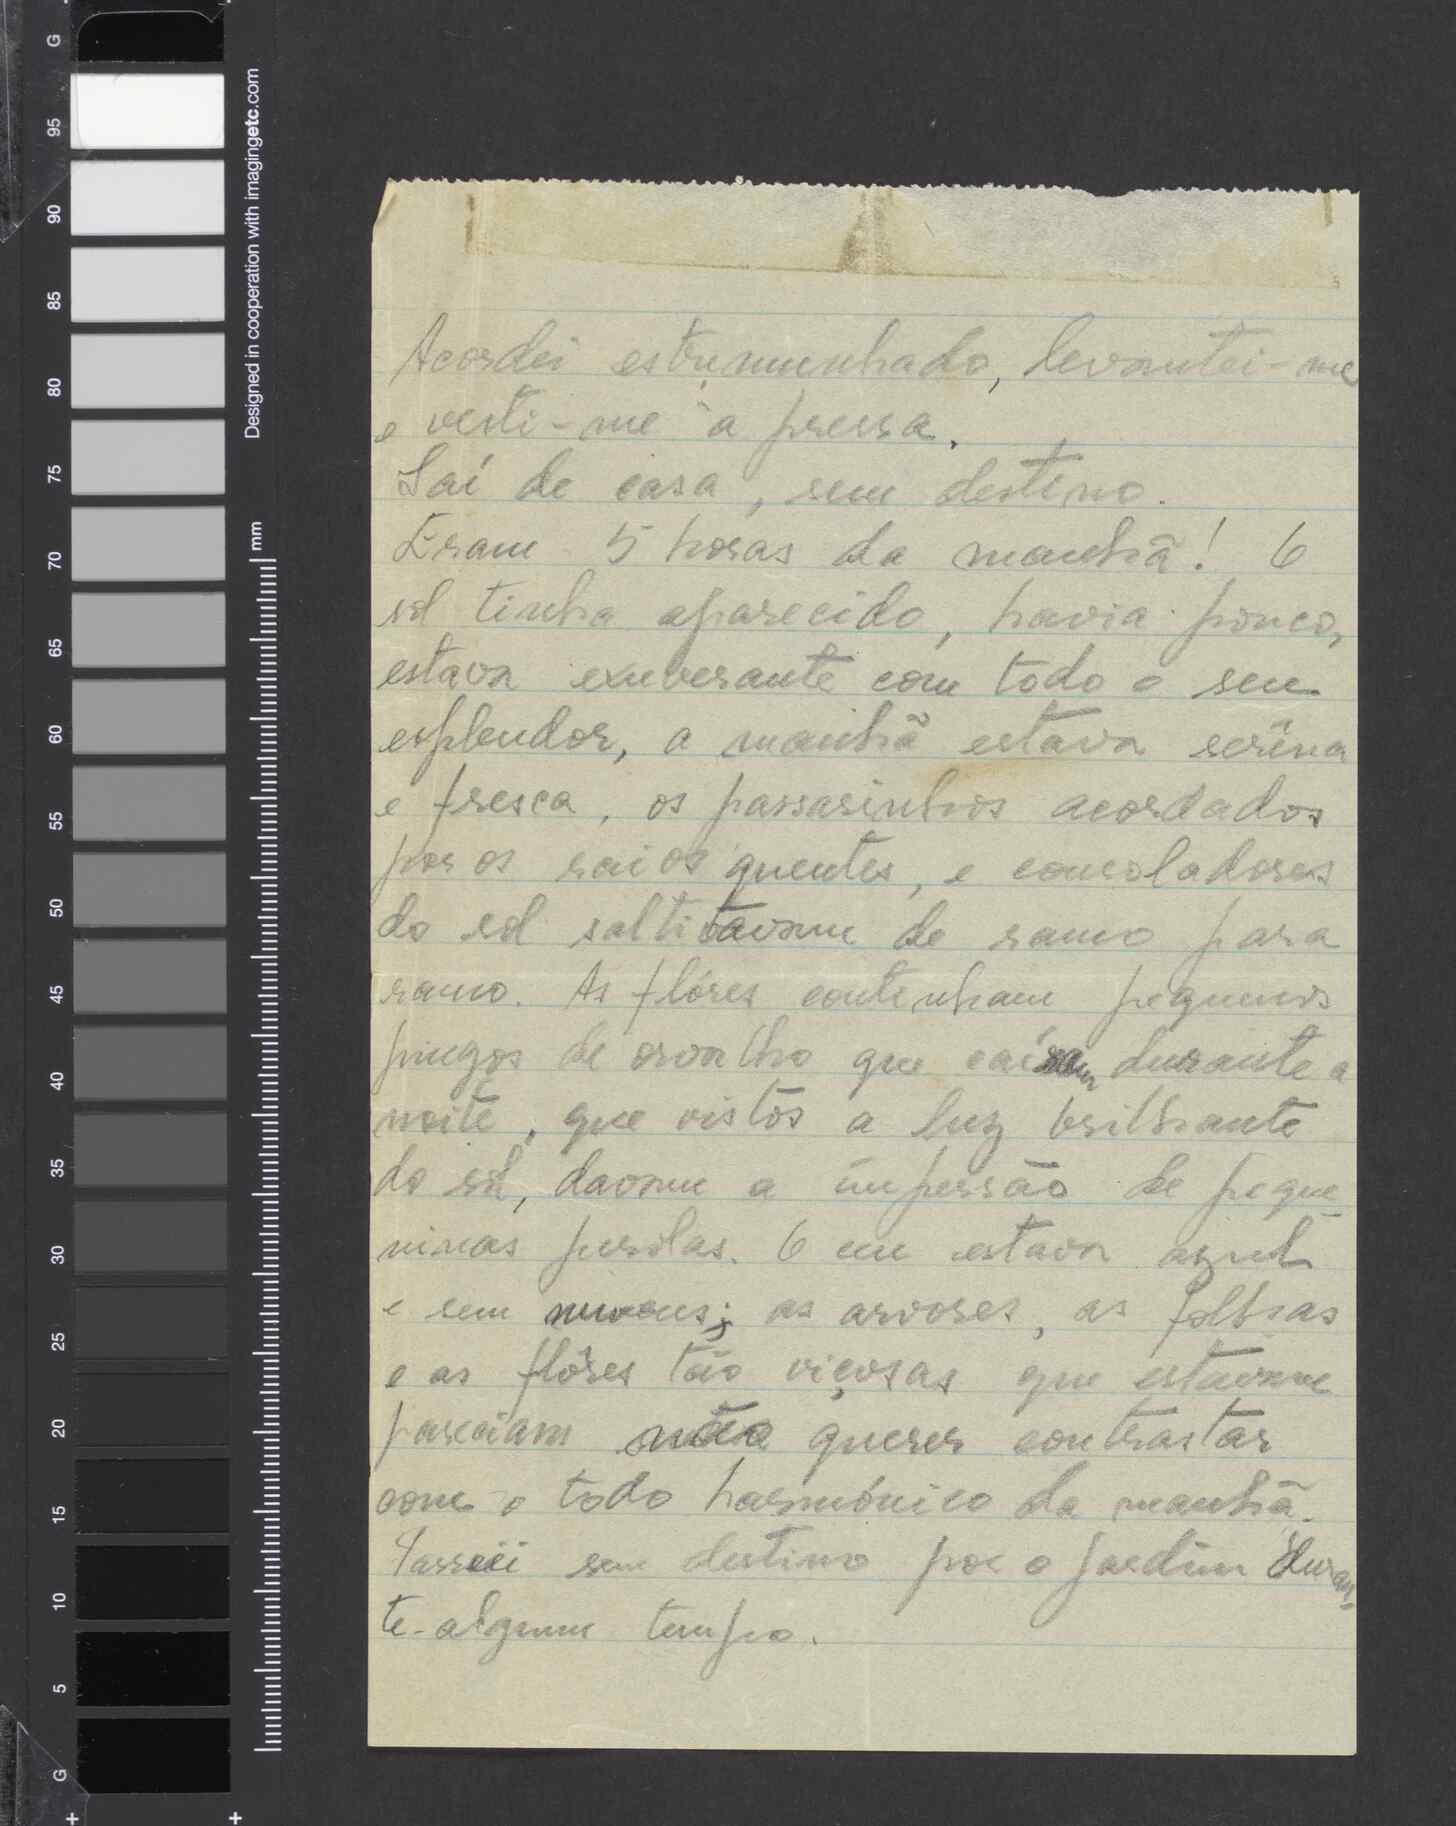 G
95
90
85
80
75
70
65
60
55
50
45
40
35
30
25
20
15
10
5
G
Designed in cooperation with imagingetc.com
mm
Acordei estrumunhado, levantei-me
e vesti-me à pressa.
Saí de casa, sem destino.
Eram 5 horas da manhã! O
sol tinha aparecido, havia pouco,
estava exuverante com todo o seu
esplendor, a manhã estava serêna
e fresca, os passarinhos acordados
por os raios quentes, e consoladores
do sol saltitavam de ramo para
ramo. As flóres continham pequenos
pingos de orvalho que caíram durante a
noite, que vistos a luz brilhante
do sol, davam a impersão de peque-
ninas perolas. O ceu estava azul
e sem nuvens; as arvores, as folhas
e as flôres tão viçosas que estavam
pareciam não querer contrastar
com o todo harmónico da manhã.
Passeei sem destino por o jardim duran-
te algum tempo.